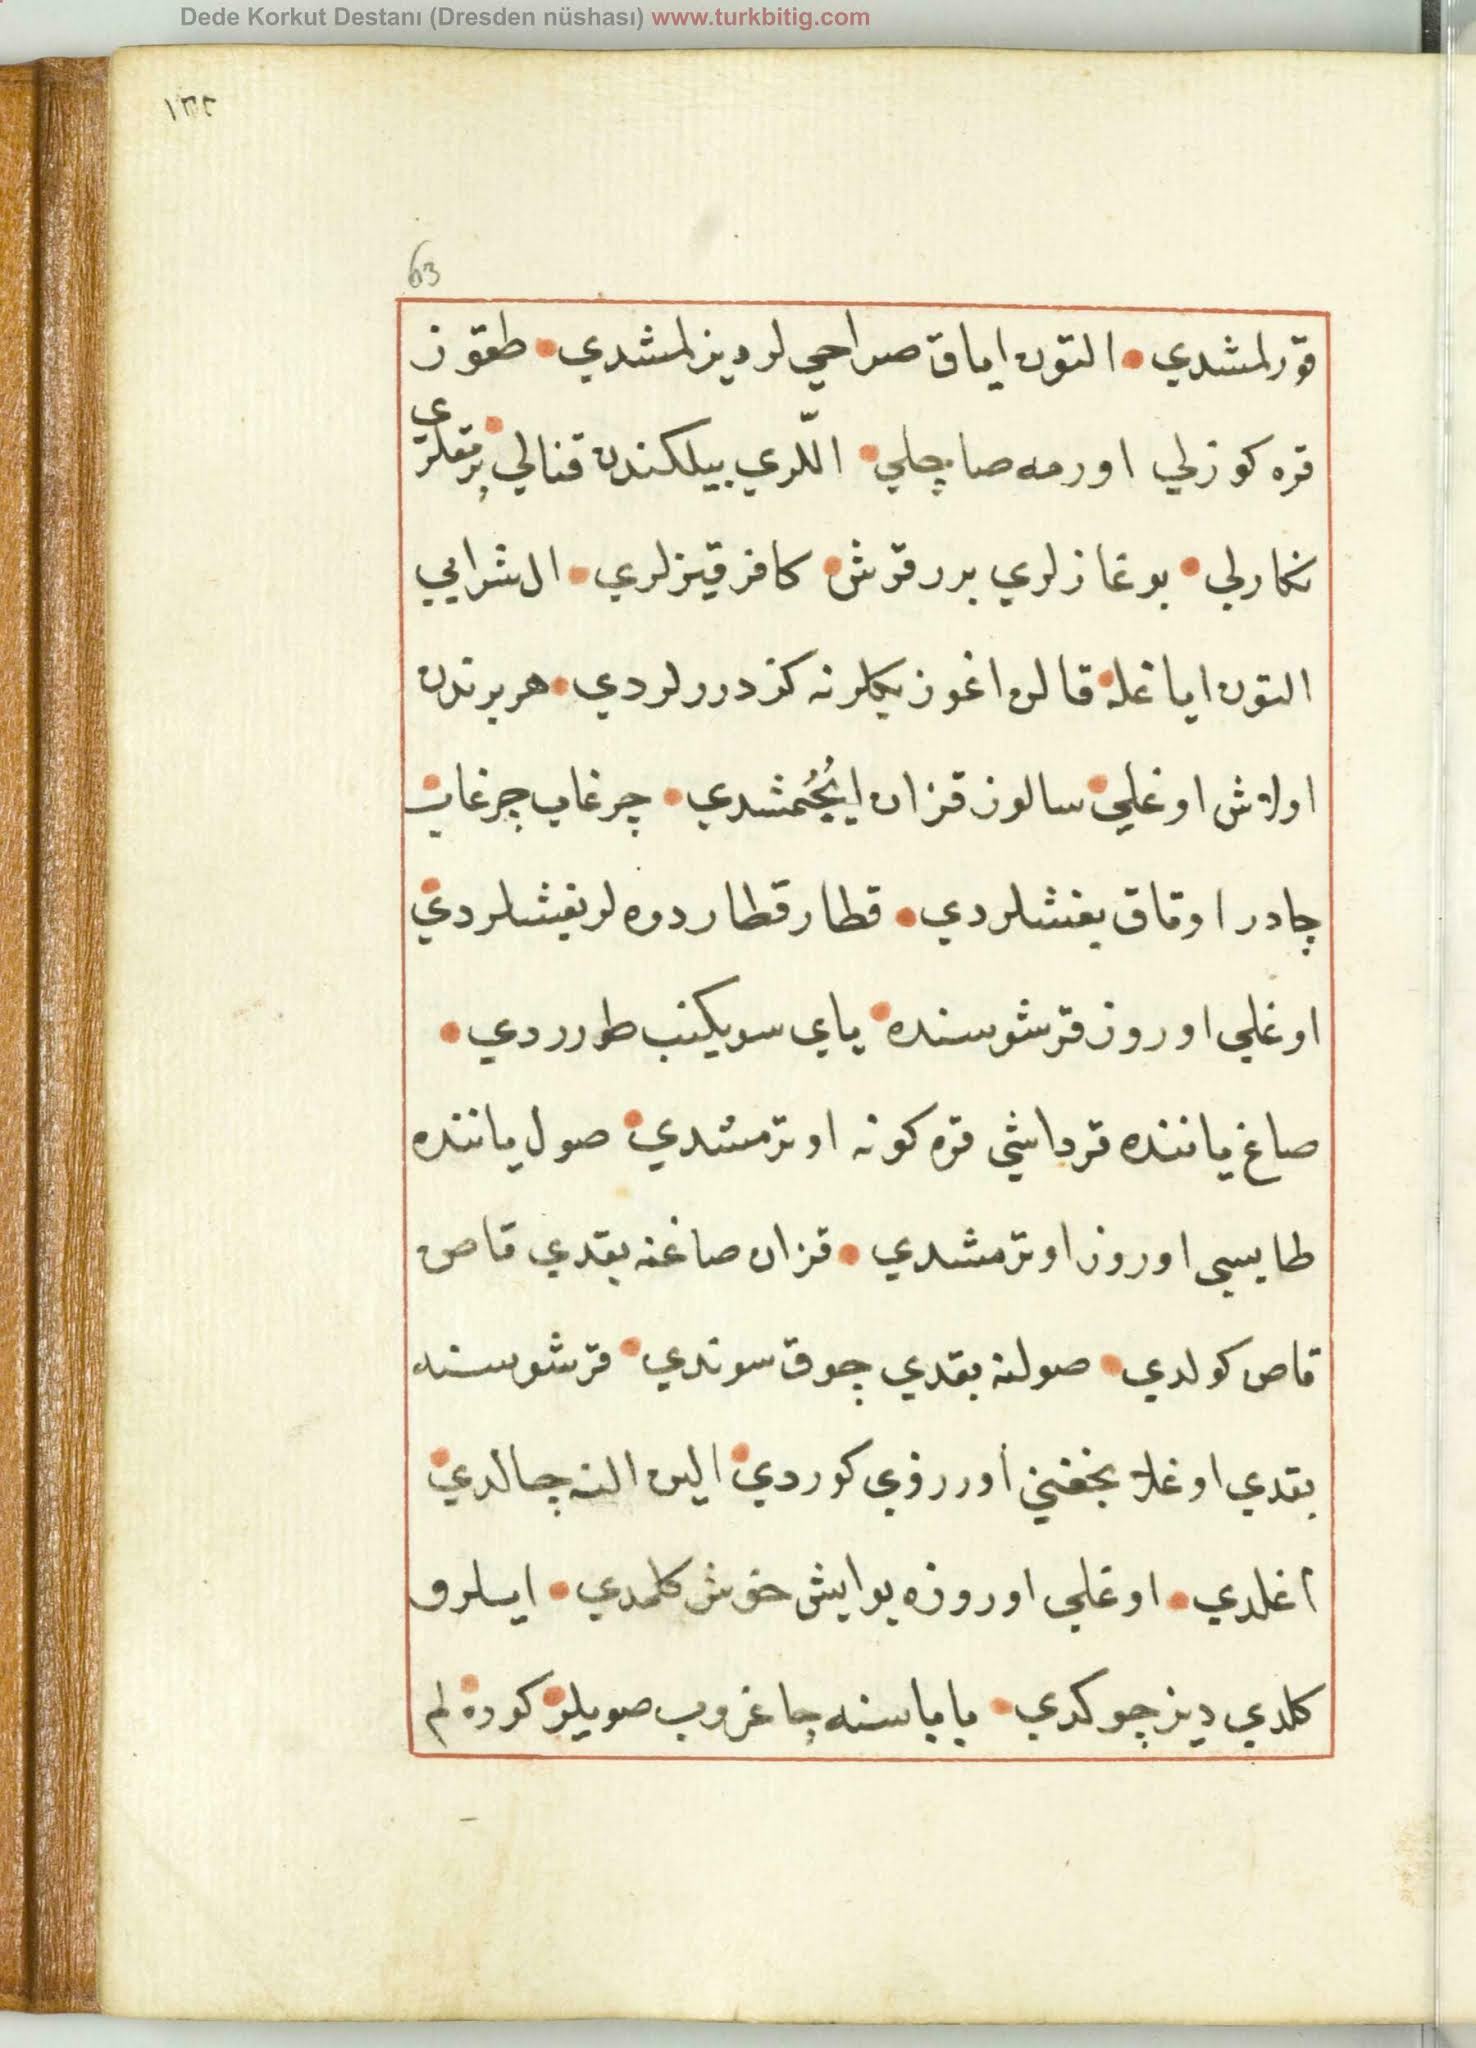 Dede Korkut Destanı (Dresden nüshası) www.turkbitig.com
١٢٢
63
قورلمشدي • التون اياق صراحي لر ديزلمشدي • طقوز
قره كوزلي اورمه صاچلي • اللّري بيلكندن قنالي • پرمقلري
نكارلي • بوغازلري برر قرش • كافر قيزلري • ال شرابي
التون اياغله • قالن اغوز بكلرنه كزدررلردي • هر برندن
اولاش اوغلي • سالور قزان ايچُمُشدي • چرغاب چرغاب •
چادر اوقاق بغشلردي • قطار قطار دوه لر بغشلردي •
اوغلي اوروز قرشوسنده • ياي سويكنب طورردي •
صاغ ياننده قرداشي قره كونه اوترمشدي • صول ياننده
طايسي اوروز اوترمشدي • قزان صاغنه بقدي قاص
قاص كولدي • صولنه بقدي چوق سوندي • قرشوسنه
بقدي اوغلا نجغني اورروزي كوردي • الين النه چالدي •
اغلدي • اوغلي اوروزه بو ايش خوش كلمدي • ايلرو
كلدي ديز چوكدي • باباسنه چاغروب صويلر • كوره لم